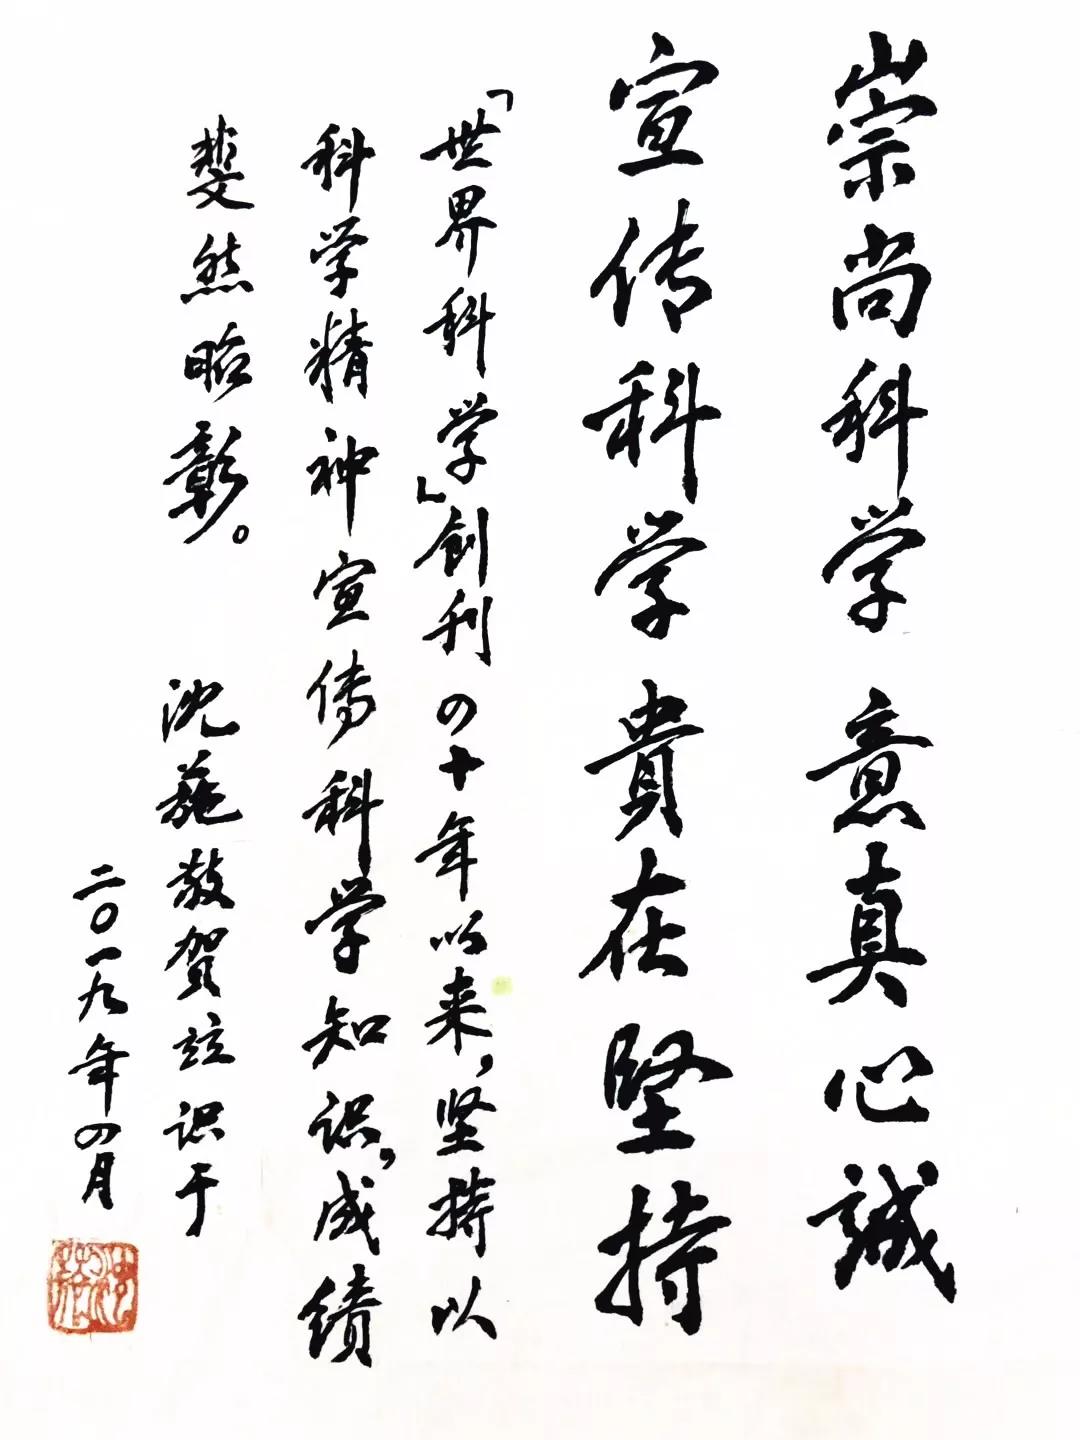 崇尚科学 意真心誠
宣传科学 貴在堅持
「世界科学」创刊四十年以来，坚持以
科学精神宣傳科学知识，成绩
斐然昭彰。
沈葹敬賀竝识于
二〇一九年四月